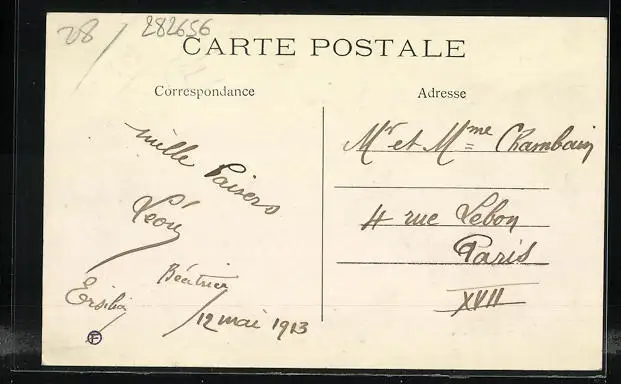 28 / 282656
CARTE POSTALE
Correspondance
mille baisers
Léon
Béatrice
Ersilia
12 mai 1913
F
Adresse
Mr et Mme Chambain
4 rue Lebon
Paris
XVII